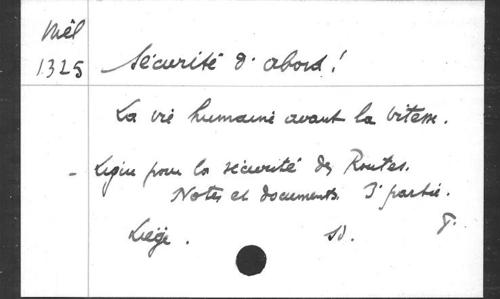 Mél
1325 Sécurité d'abord!
La vie humaine avant la vitesse.
- Ligue pour la sécurité des Routes.
Notes et documents. 3e partie.
Liège. SD.